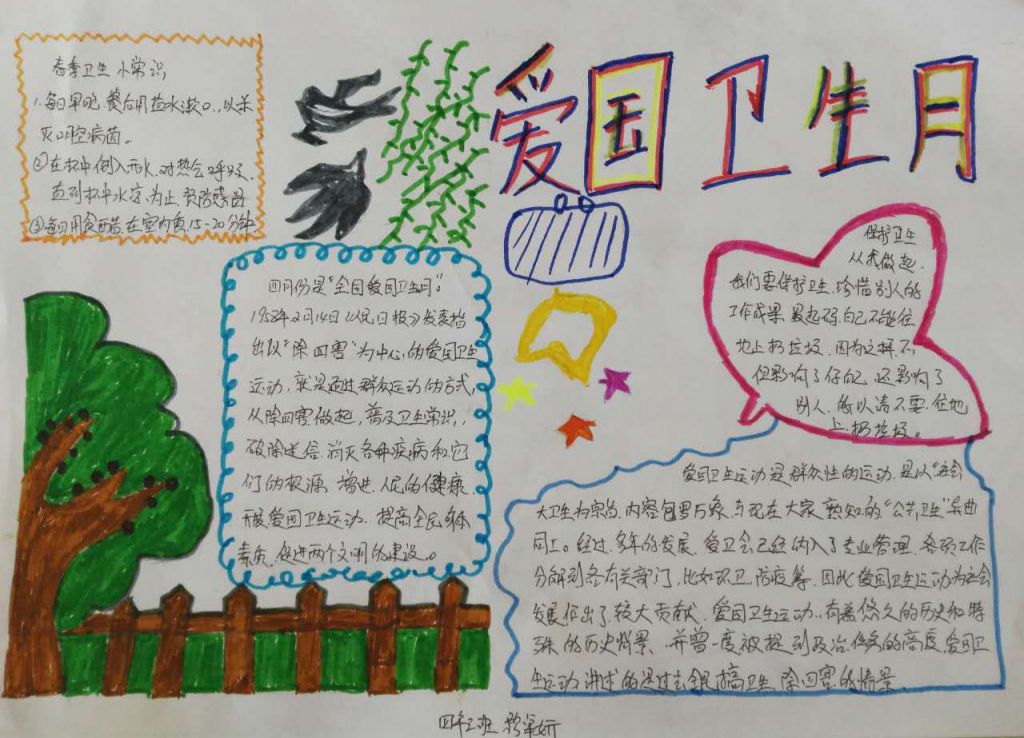 爱国卫生月
春季卫生小常识
1.每日早晚、餐后用盐水漱口,以杀
灭口腔病菌。
②在杯中倒入开水,对热会呼吸,
直到杯中水凉为止,预防感冒
③每日用食醋,在室内熏15-20分钟
四月份是“全国爱国卫生月”。
1958年2月14日《人民日报》发表指
出以“除四害”为中心,的爱国卫生
运动,就是通过群众运动的方式,
从除四害做起,普及卫生常识,
破除迷信,消灭各种疾病和它
们的根源,增进人民的健康,
开展爱国卫生运动,提高全民身体
素质,促进两个文明的建设。
保护卫生
从我做起
我们要保护卫生,珍惜别人的
工作成果,最起码自己不能往
地上扔垃圾,因为这样不
但影响了自己,还影响了
别人,所以请不要往地
上扔垃圾。
爱国卫生运动是群众性的运动,是以“社会
大卫生为宗旨,内容包罗万象,与现在大家熟知的“公共卫生”异曲
同工。经过多年的发展,爱卫会已经纳入了专业管理,各项工作
分解到各有关部门,比如环卫、防疫等,因此爱国卫生运动为社会
发展作出了较大贡献,爱国卫生运动,有着悠久的历史和特
殊的历史背景,并曾一度被提到政治任务的高度,爱国卫
生运动讲述的是过去全民搞卫生,除四害的情景。
四年三班